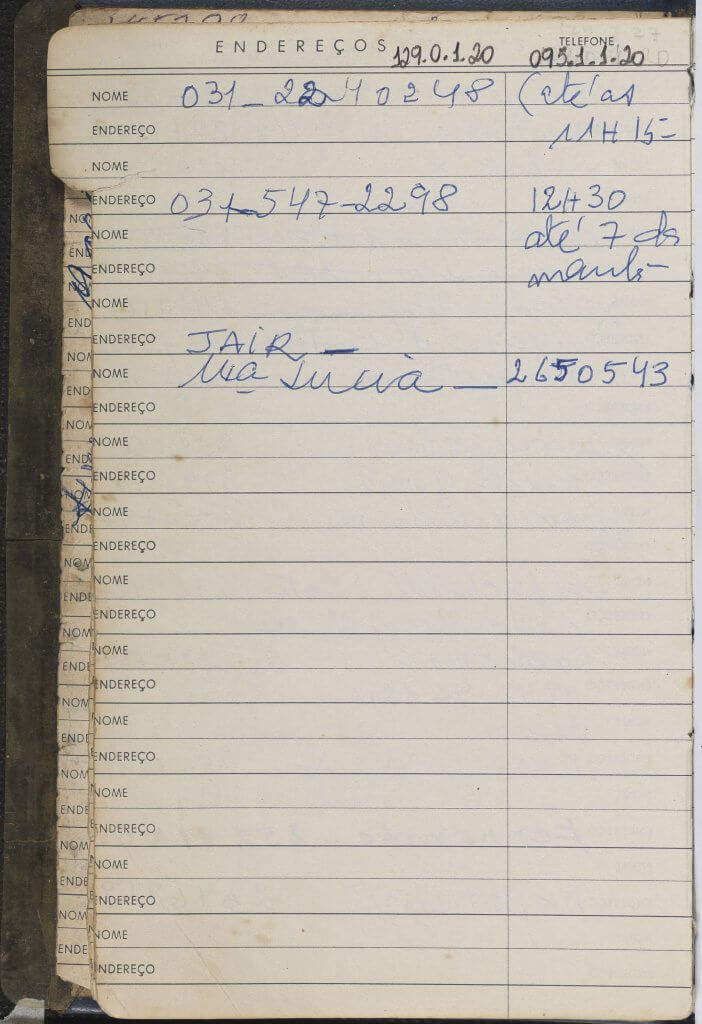 ENDEREÇOS 129.0.1.20 TELEFONE 095.1.1.20
NOME 031_2240248 (até as
ENDEREÇO 11H15-
NOME
ENDEREÇO 031-547-2298 12H30
NOME até 7 da
ENDEREÇO manhã-
NOME
ENDEREÇO JAIR_
NOME Mª Lucia_2650543
ENDEREÇO
NOME
ENDEREÇO
NOME
ENDEREÇO
NOME
ENDEREÇO
NOME
ENDEREÇO
NOME
ENDEREÇO
NOME
ENDEREÇO
NOME
ENDEREÇO
NOME
ENDEREÇO